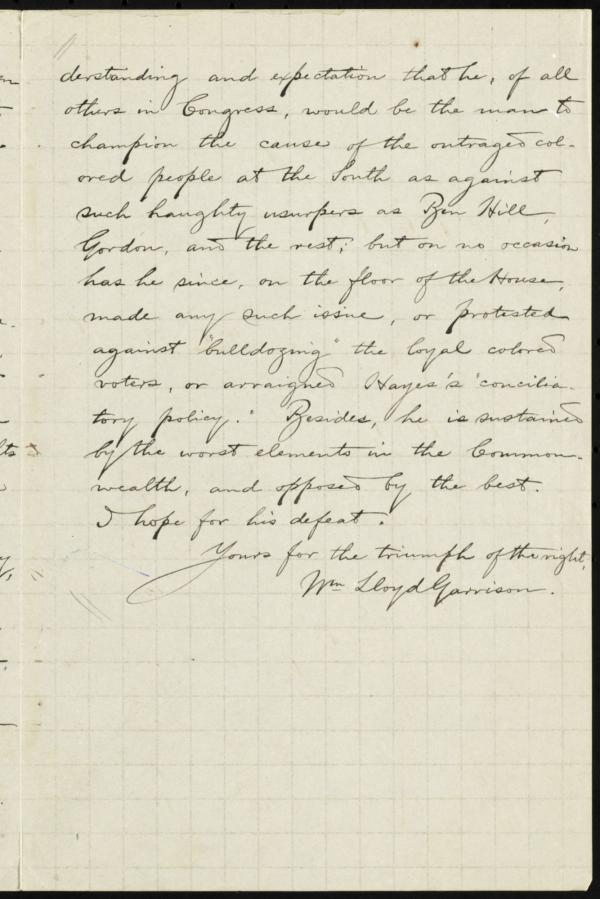 derstanding and expectation that he, of all
others in Congress, would be the man to
champion the cause of the outraged col-
ored people at the South as against
such haughty usurpers as Ben Hill,
Gordon, and the rest; but on no occasion
has he since, on the floor of the House,
made any such issue, or protested
against "bulldozing" the loyal colored
voters, or arraigned Hayes's "concilia-
tory policy." Besides, he is sustained
by the worst elements in the Common-
wealth, and opposed by the best.
I hope for his defeat.
Yours for the triumph of the right,
Wm Lloyd Garrison.